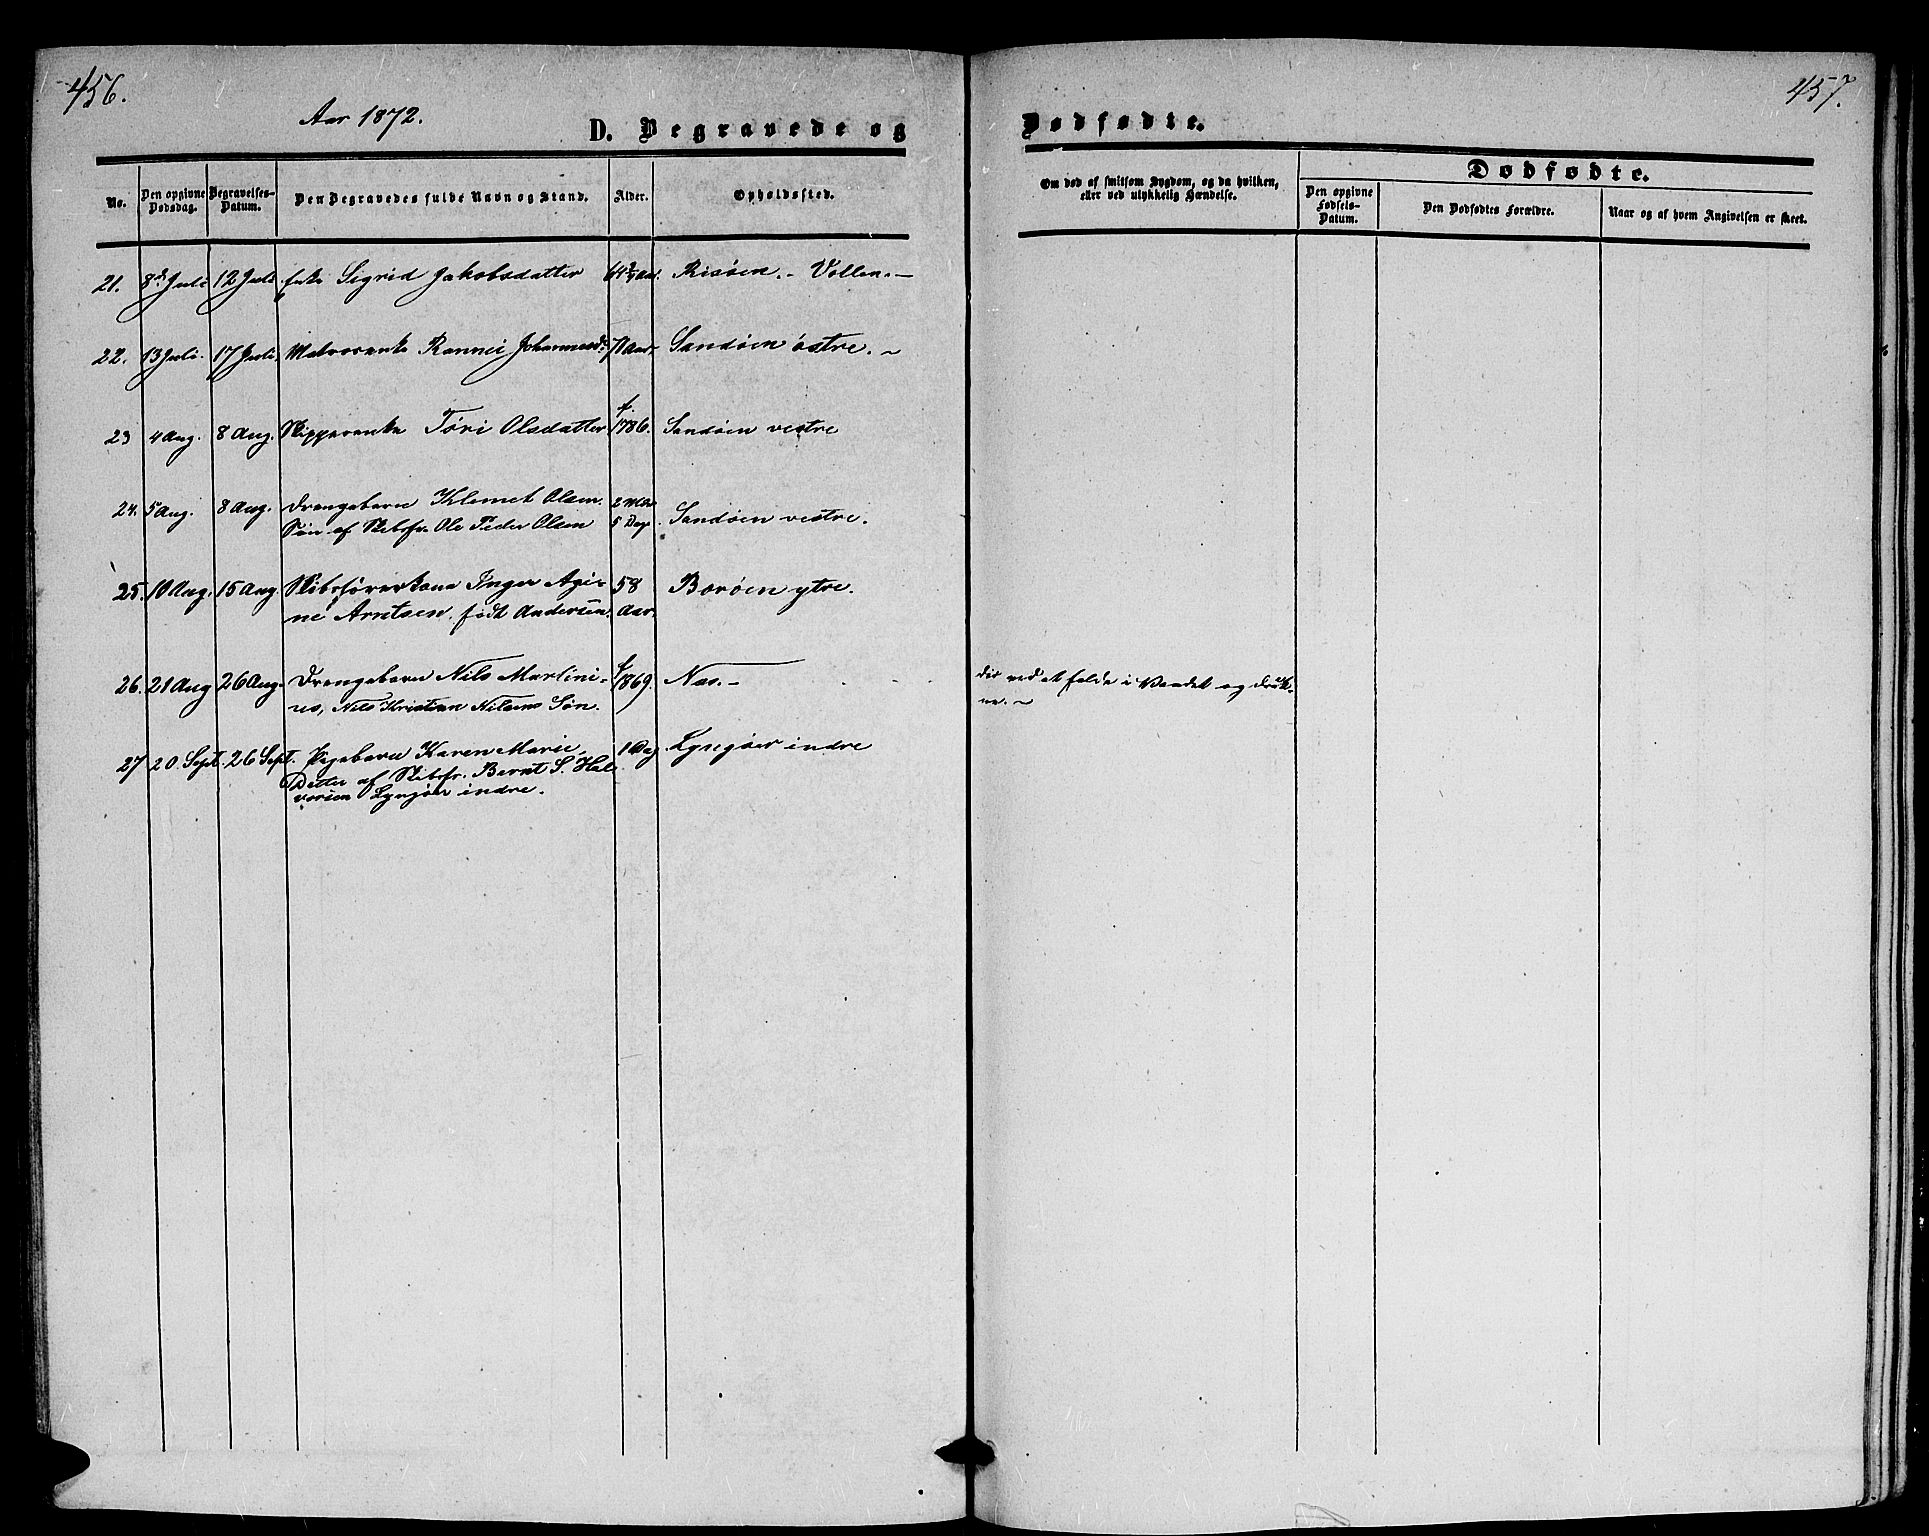 456.
Aar 1872.
D. Begravede og
No.
Den opgivne Dødsdag.
Begravelses-Datum.
Den Begravedes fulde Navn og Stand.
Alder.
Opholdssted.
21. 8de Juli 12 Juli Enke Sigrid Jakobsdatter Aar. Risøen. - Vollen. -
22. 13 Juli. 17 Juli. Matrosenke Rannei Johannesdr. 71 Aar. Sandøen østre. ~
23 4 Aug. 8 Aug. Skipperenke Tøri Olsdatter f. 1786. Sandøen vestre
24. 5 Aug. 8 Aug. Drengebarn Klemet Olsen. 2 Mdr
Søn af Skibsfr. Ole Peder Olsen 5 Dage. Sandøen vestre.
25. 10 Aug. 15 Aug. Skibsførerkone Inger Agi- 58 Borøen ytre.
ne Arntsen, født Andersen. Aar.
26. 21 Aug 26 Aug. Drengebarn Nils Martini- f 1869. Næs. -
us, Nils Kristian Nilsens Søn.
27 20 Sept. 26 Sept. Pigebarn Karen Marie, 1 Dag Lyngøer indre
Datter af Skibsfr. Bernt S. Hal
vorsen Lyngøer indre.
457.
Dødfødte.
Om død af smitsom Sygdom, og da hvilken, eller ved ulykkelig Hændelse.
Dødfødte.
Den opgivne Fødsels-Datum.
Den Dødfødtes Forældre.
Naar og af hvem Angivelsen er skeet.
ved at falde i Vandet og druk-
ne. ~